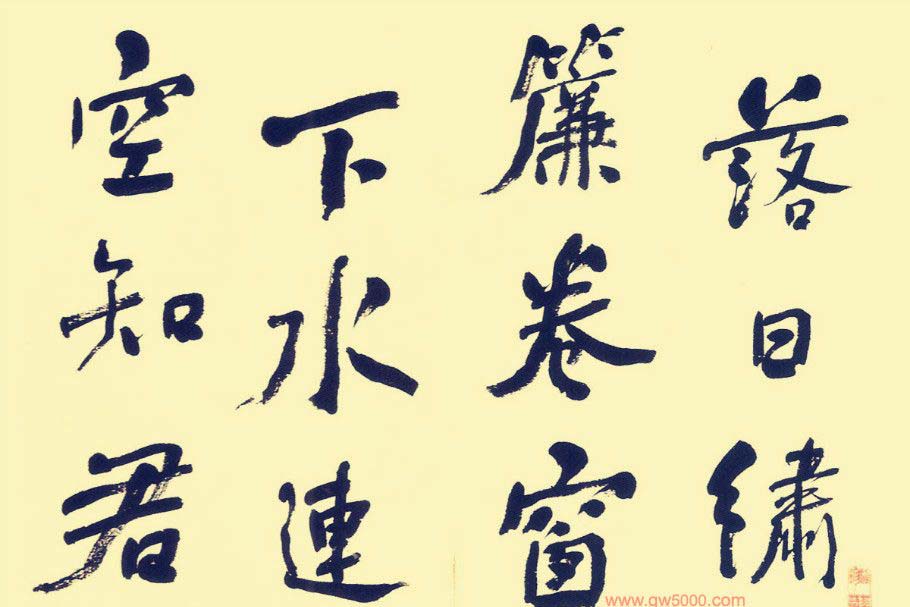 落日繡
簾卷窗
下水連
空知君
www.gw5000.com